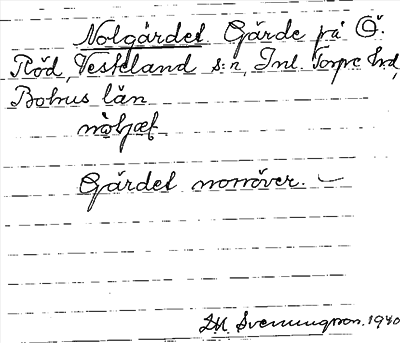 Nolgärdet Gärde på Ö.
Röd, Vesteland s:n, Inl. Torpe hrd,
Bohus län
Gärdet norröver.
Svenungson. 1940